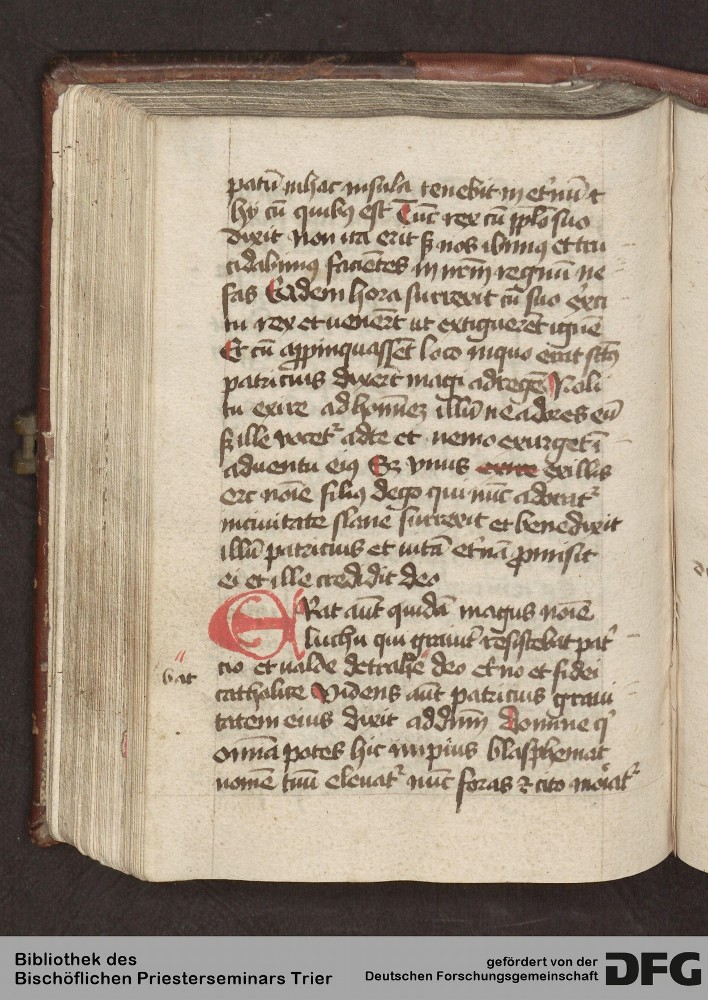 patū in hac insula tenebit in et'nū et
hy cū quibꝰ est Tūc rex cū pplo suo
dixit non ita erit sꝫ nos ibimꝰ et tru
cidabimꝰ facientes in nr̄m regnū ne
fas Eadem hora surrexit cū suo ex'ci
tu rex et venert̄ ut extiguerēt ignē
Et cū appinquassēt loco in quo erat sctꝰ
patricius dixert̄ magi ad regē Noli
tu exire ad homīeꝫ illū ne adores eū
sꝫ ille vocet' ad te et nemo exurget ī
adventu eiꝰ Sꝫ vnus exire ex illis
erc noīe filiꝰ dego qui nūc adorat'
in civitate slane surrexit et benedixit
illū patricius et vitā et'nā promisit
ei et ille credidit deo
ERat aūt quidā magus noīe
luchu qui gravit' resistebat pat'
cio et valde detrahe deo et no et fidei
bat
catholice Videns aūt patricius gravi
tatem eius dixit ad dnm̄ Domine q'
omnia potes hic impius blasphemat
nomē tuū elevat' nūc foras et cito moriat'
Bibliothek des
Bischöflichen Priesterseminars Trier
gefördert von der
Deutschen Forschungsgemeinschaft
DFG